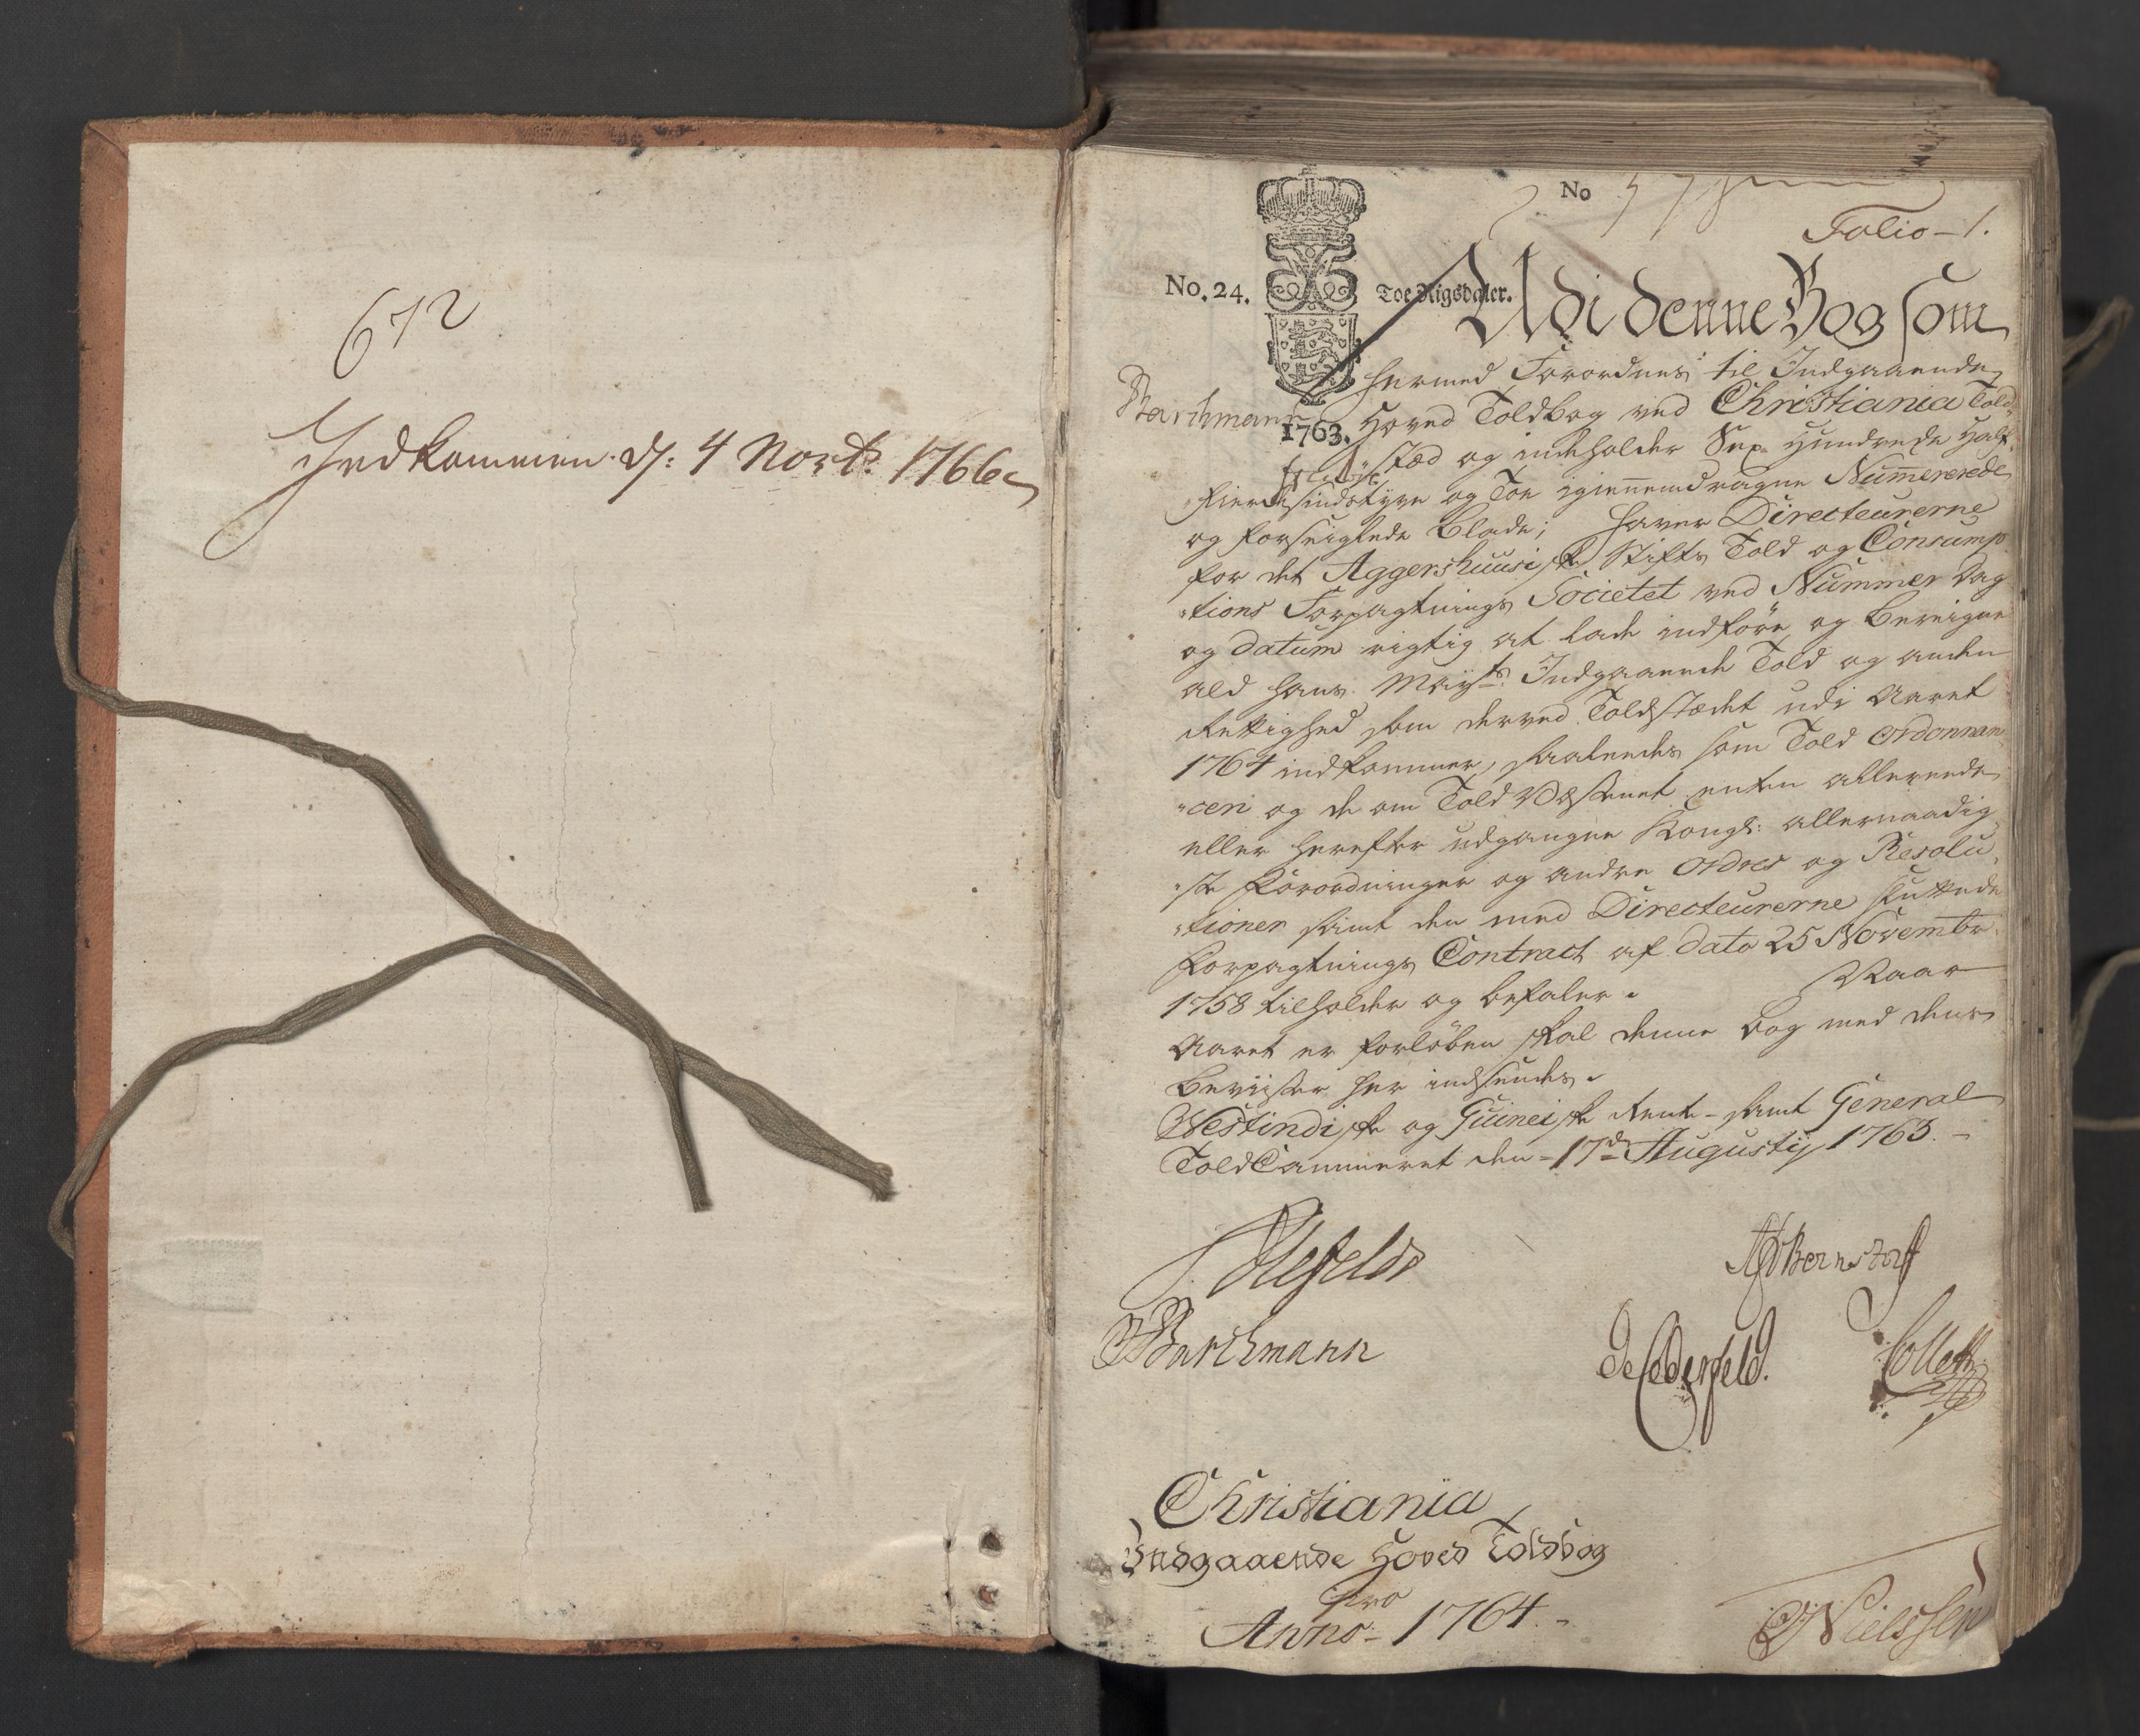 672
Indkommen d: 4 Novb. 1766
No 578
Folio - 1.
No. 24.
Toe Rigsdaler.
1763.
Barchmann
Udi denne Bog som
hermed Forordnes til Indgaaende
Hoved Toldbog ved Christiania Told
stæd og indeholder Sex Hundrede Half
fierdesindstyve og Toe igiennemdragne Nummererede
og forseiglede Blade; haver Directeurerne
for det Aggershuusiske Stifts Told og Consump
tions Forpagtnings Societet ved Nummer Dag
og datum rigtig at lade indføre og beregne
ald hans Mayts: Indgaaende Told og anden
Rettighed som derved Toldstædet udi Aaret
1764 indkommer, saaledes som Told Ordonnan
cen og de om Told Væsenet enten allereede
eller herefter udgangne Kongl: allernaadig
ste Forordninger og andre Ordres og Resolu
tioner samt den med Directeurerne sluttede
Forpagtnings Contract af dato 25 Novembr
1758 tilholder og befaler. Naar
Aaret er forløben skal denne bog med dens
Beviiser her indsendes.
Westindiske og Guineiske Rente- samt General
ToldCammeret den 17de Augustij 1763.
Ahlefeldt
Bernstorff
Barchmann
de Cederfeld.
Collett
Christiania
Indgaaende Hoved Toldbog
pro
Anno 1764.
Nielssen